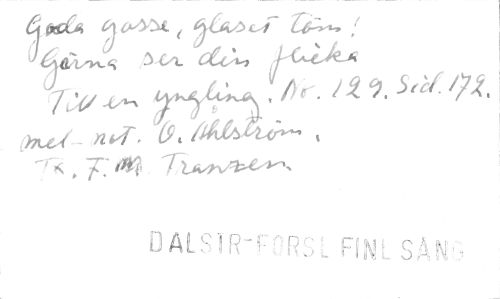 Goda gosse, glaset töm!
Gärna ser din flicka
Till en yngling. No. 129. Sid. 172.
mel-not. O. Åhlström.
Tx. F. M. Franzen.
DALSTR-FORSL FINL SÅNG